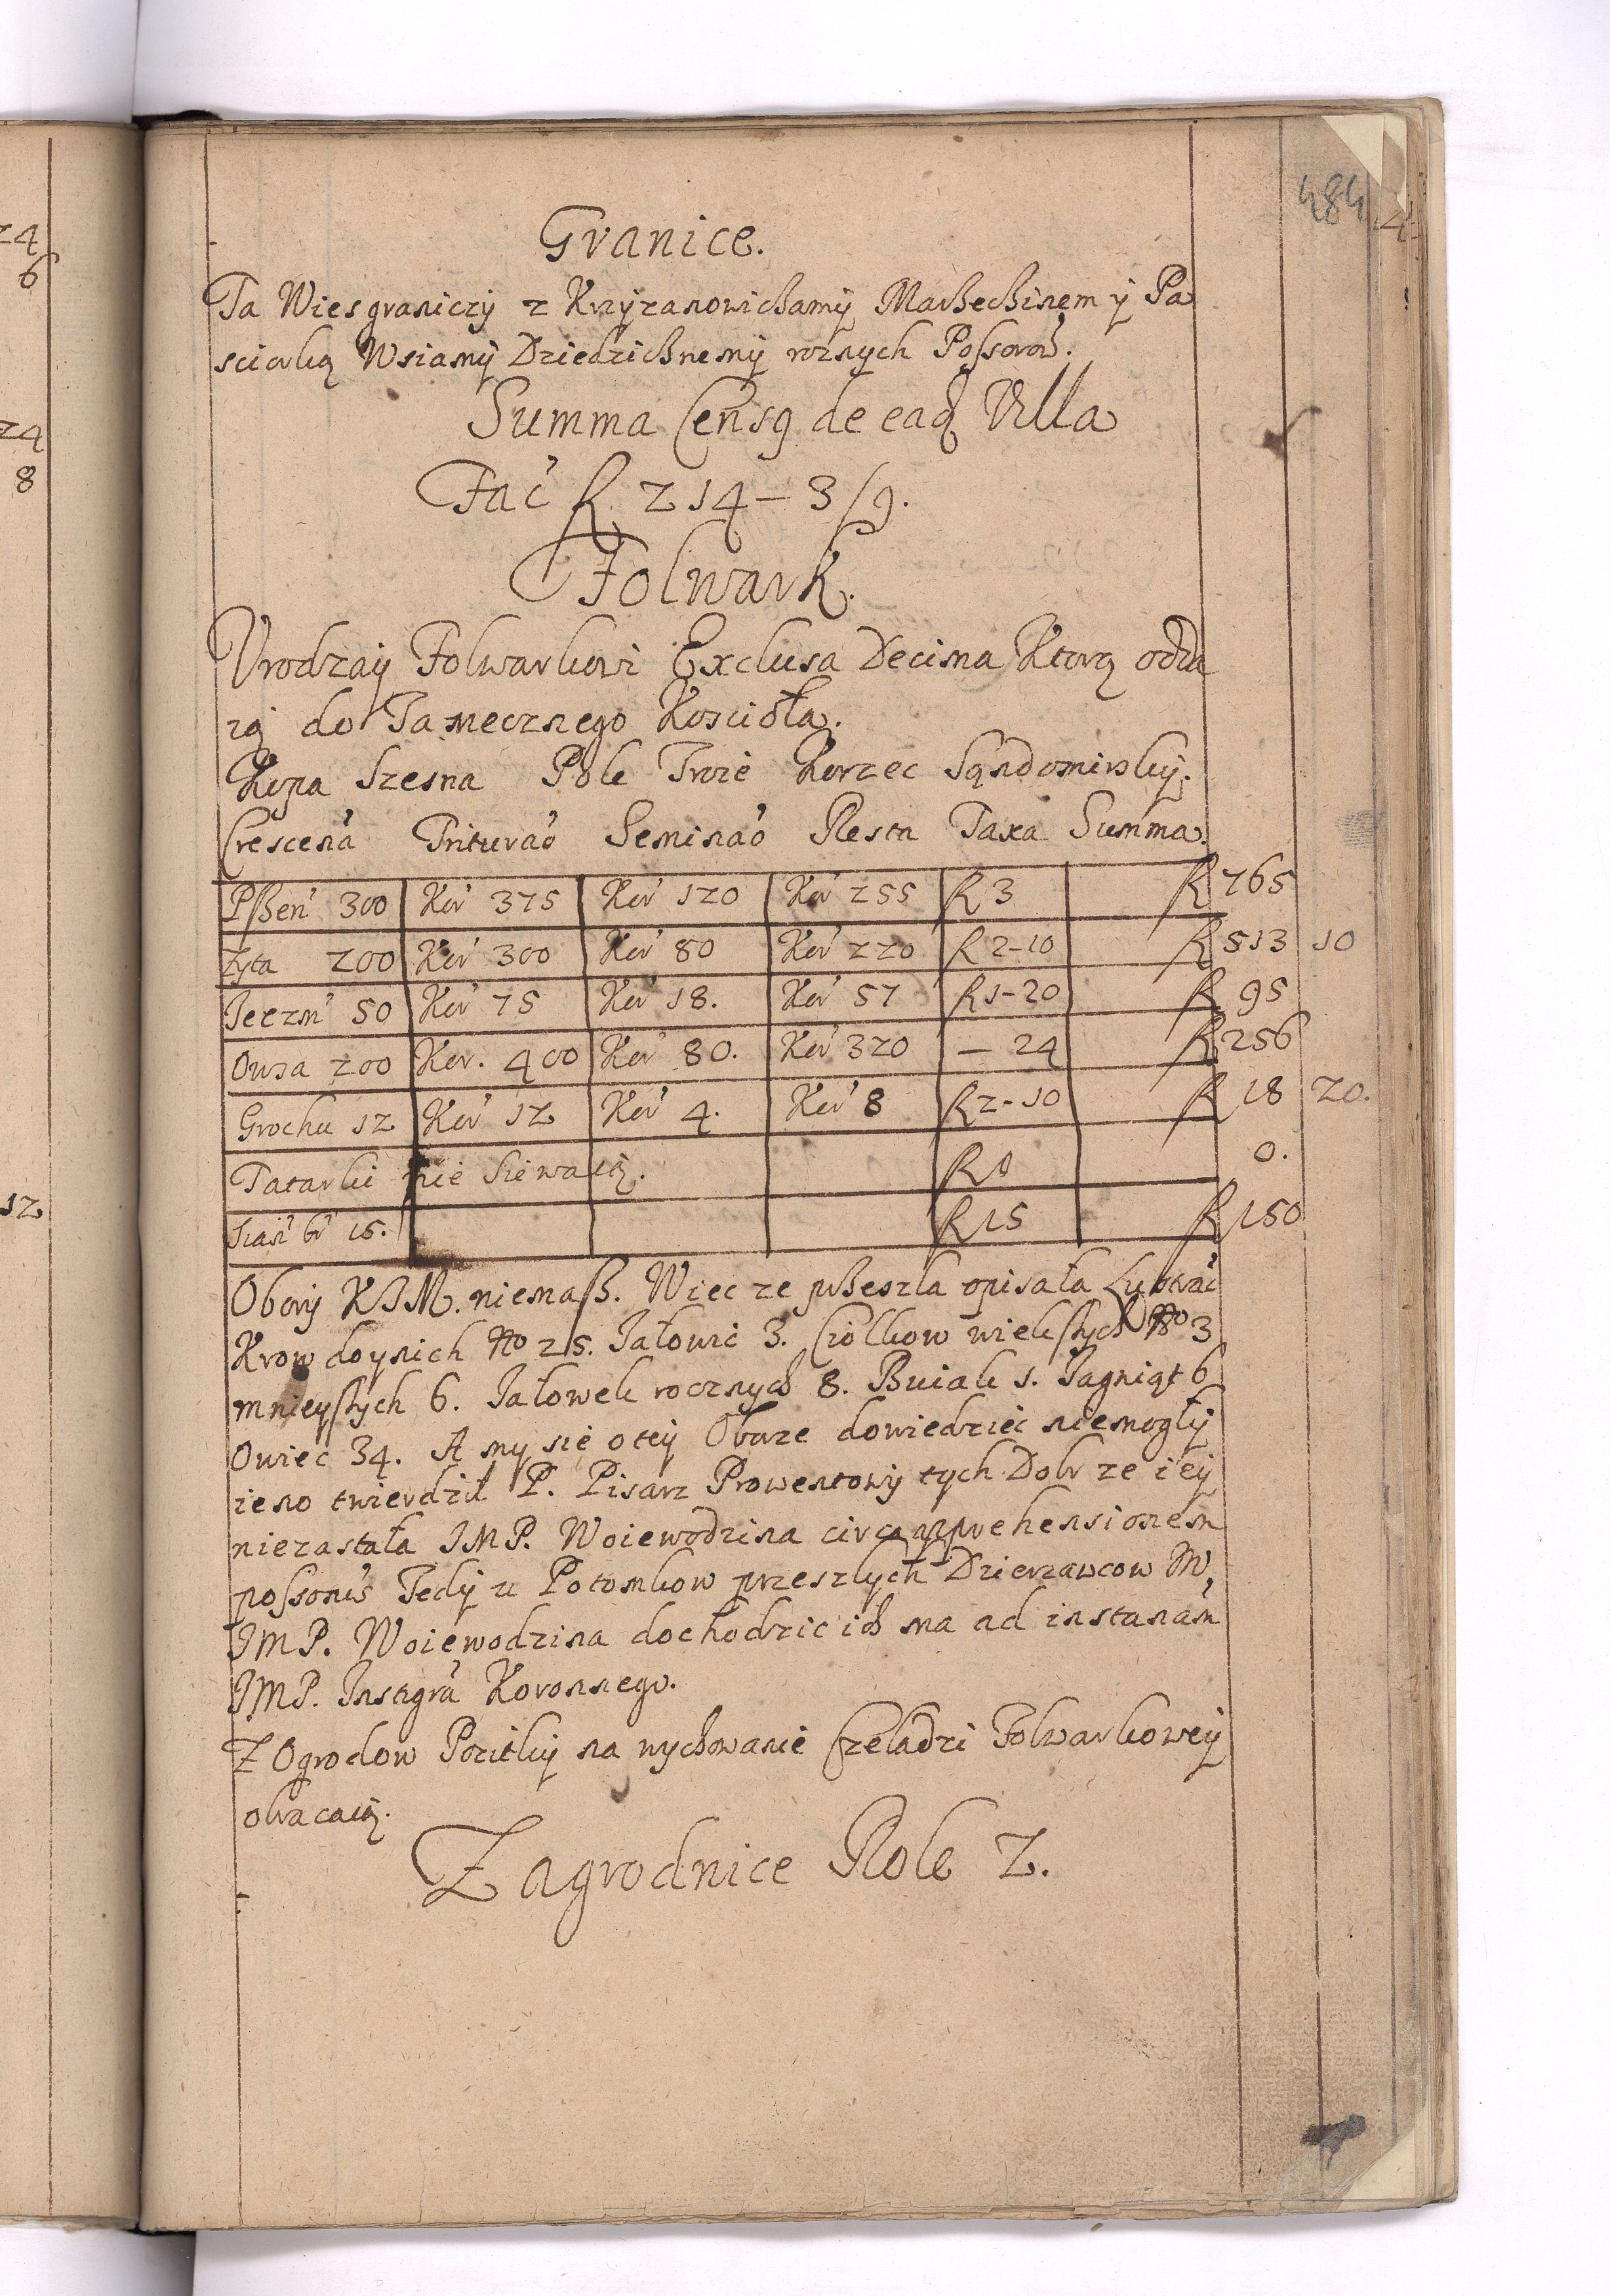 24
6
24
8
12
484
Granice.
Ta Wies graniczy z Krzyzanowickamy Markeckinem y Pa
sciorką Wsiamy Dziedzicknemy roznych Possorow.
Summa Censq de eaq Villa
Fac R 214 – 3/9.
Folwark.
Vrodzay Folwarkowi Exclusa Decima Ktorą odda
ią do Tamecznego Kosciola.
Kopa Szesna Pole Troie Korzec Sądomirsky.
Crescena Triturao Seminao Resta Taxa Summa.
Pßen 300 Kor 375 Kor 120 Kor 255 R 3 R 765
Zyta 200 Kor 300 Kor 80 Kor 220 R 2-10 R 513 10
Jeczm 50 Kor 75 Kor 18. Kor 57 R 1-20 R 95
Owsa 200 Kor. 400 Kor 80. Kor 320 – 24 R 256
Grochu 12 Kor 12 Kor 4. Kor 8 R 2-10 R 18 20.
Tatarki nie Siewaią. R 0 0.
Sian br 15. R 15 R 150
Obory KJM. niemaß. Wiec ze pßeszla opisała Lustrac
Krow doynich No 25. Jałowic 3. Ciołkow wiekszych No 3
mnieyszych 6. Jałowek rocznych 8. Buiak 1. Jagniąt 6
Owiec 34. A my sie o tey Oborze dowiedziec niemogły
ieno twierdził P. Pisarz Prowentowy tych Dobr ze iey
niezastała JMP. Woiewodzina circa apprehensionem
possonis Tedy u Potomkow przeszłych Dzierzawcow
JMP. Woiewodzina dochodzic ich ma ad instanam
JMP. Instigra Koronnego.
Z Ogrodow Pozitky na wychowanie Czeladzi Folwarkowey
obracaią.
Zagrodnice Role 2.